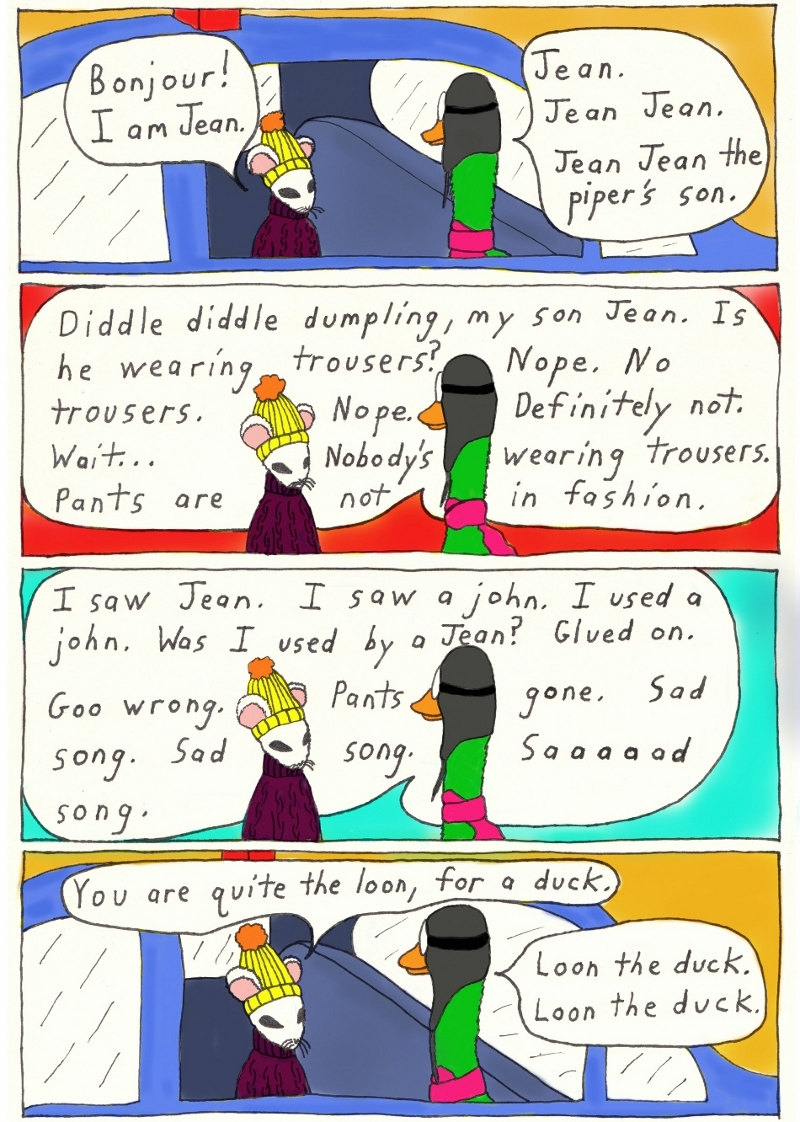 Bonjour!
I am Jean.
Jean.
Jean Jean.
Jean Jean the
piper's son.
Diddle diddle dumpling, my son Jean. Is
he wearing trousers? Nope. No
trousers. Nope. Definitely not.
Wait... Nobody's wearing trousers.
Pants are not in fashion.
I saw Jean. I saw a john. I used a
john. Was I used by a Jean? Glued on.
Goo wrong. Pants gone. Sad
song. Sad song. Saaaaad
song.
You are quite the loon, for a duck.
Loon the duck.
Loon the duck.